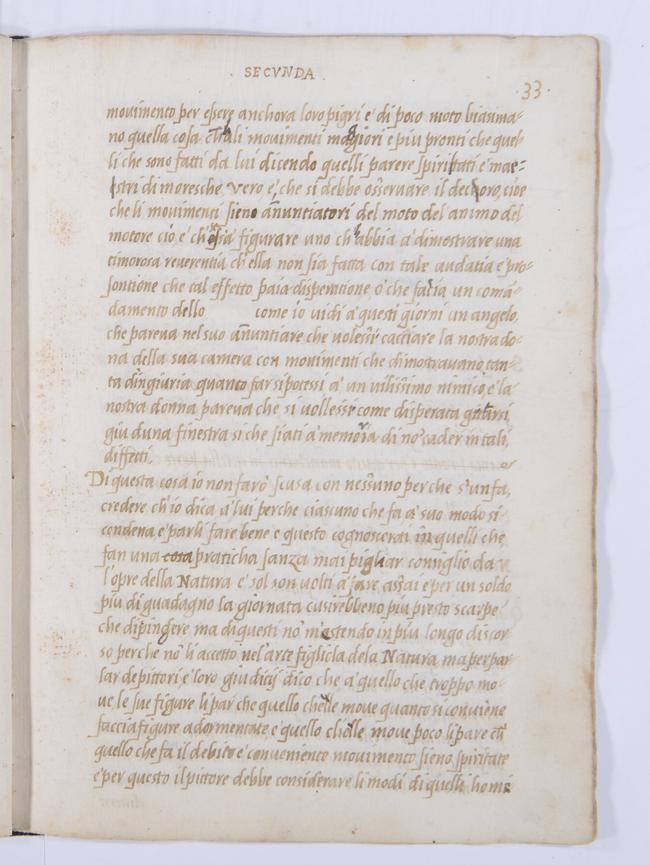 SECVNDA
33
movimento per essere anchora loro pigri e di poco moto biasima-
no quella cosa ch'ha li movimenti magiori e piu pronti che quel-
li che sono fatti da lui dicendo quelli parere spiritati e mae-
stri di moresche, vero, e, che si debbe osservare il decoro, cioe
che li movimenti sieno añuntiatori del moto del animo del
motore cio e ch'ossia figurare uno ch'habbia a dimostrare una
timorosa reverentia ch'ella non sia fatta con tale audatia e pro-
sontione che tal effetto paia disperatione, o che facia un comā-
damento dello come io vidi a questi giorni un angelo,
che pareva nel suo añuntiare che volessi cacciare la nostra do-
na della sua camera con movimenti che dimostravano tan-
ta d'ingiuria quanto far si potessi a un vilissimo nimico, e la
nostra donna pareva che si vollessi come disperata gitarsi,
giu duna finestra si che siati a memoria di nō cader in tali,
diffetti.
Di questa cosa io non faro scusa con nessuno perche s'un fa,
credere ch'io dica a lui perche ciascuno che fa, a suo modo si
condena e parli fare bene e questo cognoscerai in quelli che
fan una cosa praticha sanza mai pigliar consiglio da
l'opre della Natura e sol son volti a fare assai e per un soldo
piu di guadagno la giornata cusirebbeno piu presto scarpe
che dipingere ma di questi nō m'estendo in piu longo discor
so perche nō li accetto nel'arte figliola dela Natura ma per par
lar de pittori e loro giuditij dico che a quello che troppo mo-
ve, le sue figure li par che quello che le move quanto si conviene
faccia figure adormentate e quello che le, move poco li pare ch
quello che fa il debito e conveniente movimento sieno, spiritate
e per questo il pittore debbe considerare li modi di quelli homi